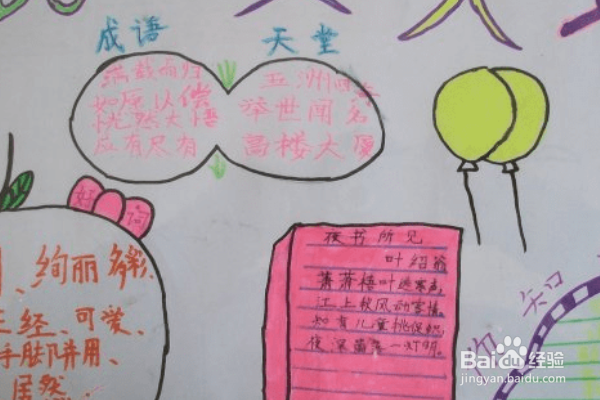 成语 天堂
满载而归
如愿以偿
恍然大悟
应有尽有
五洲四海
举世闻名
高楼大厦
好词
绚丽多彩
正经、可爱、
手脚并用、
居然
夜书所见
叶绍翁
萧萧梧叶送寒声,
江上秋风动客情。
知有儿童挑促织,
夜深篱落一灯明。
知
Baidu经验
jingyan.baidu.com